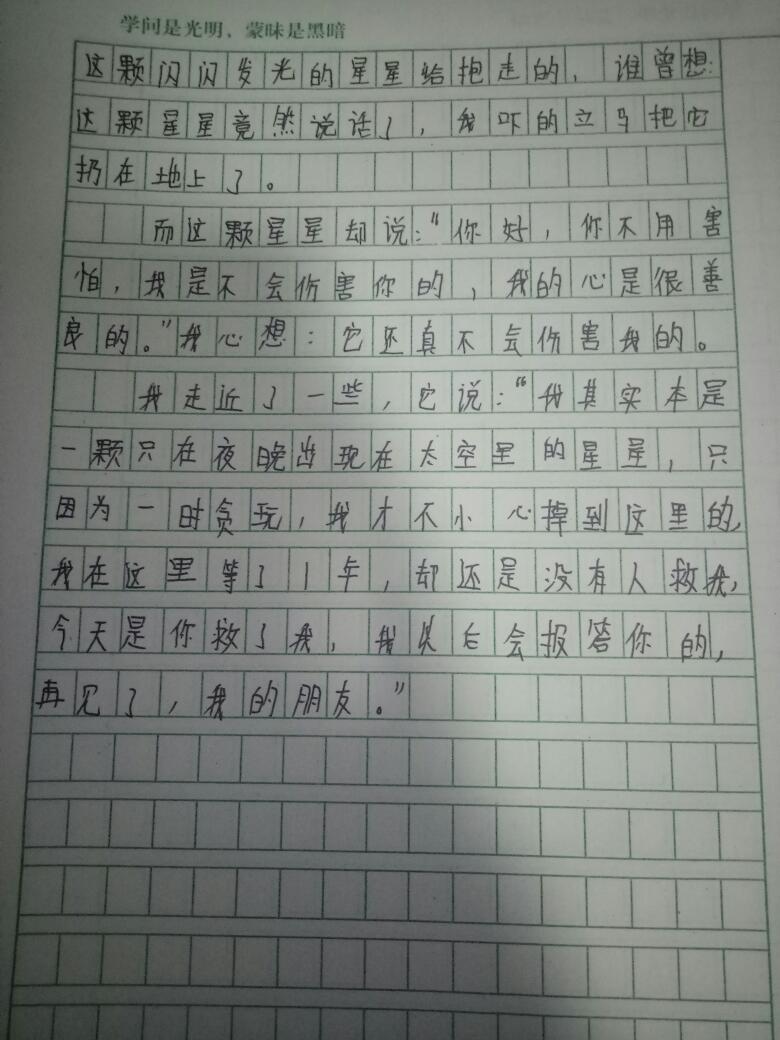 学问是光明、蒙昧是黑暗
这颗闪闪发光的星星给抱走的，谁曾想：
这颗星星竟然说话了，我吓的立马把它
扔在地上了。
而这颗星星却说：“你好，你不用害
怕，我是不会伤害你的，我的心是很善
良的。”我心想：它还真不会伤害我的。
我走近了一些，它说：“我其实本是
一颗只在夜晚出现在太空里的星星，只
因为一时贪玩，我才不小心掉到这里的，
我在这里等了1年，却还是没有人救我，
今天是你救了我，我以后会报答你的，
再见了，我的朋友。”